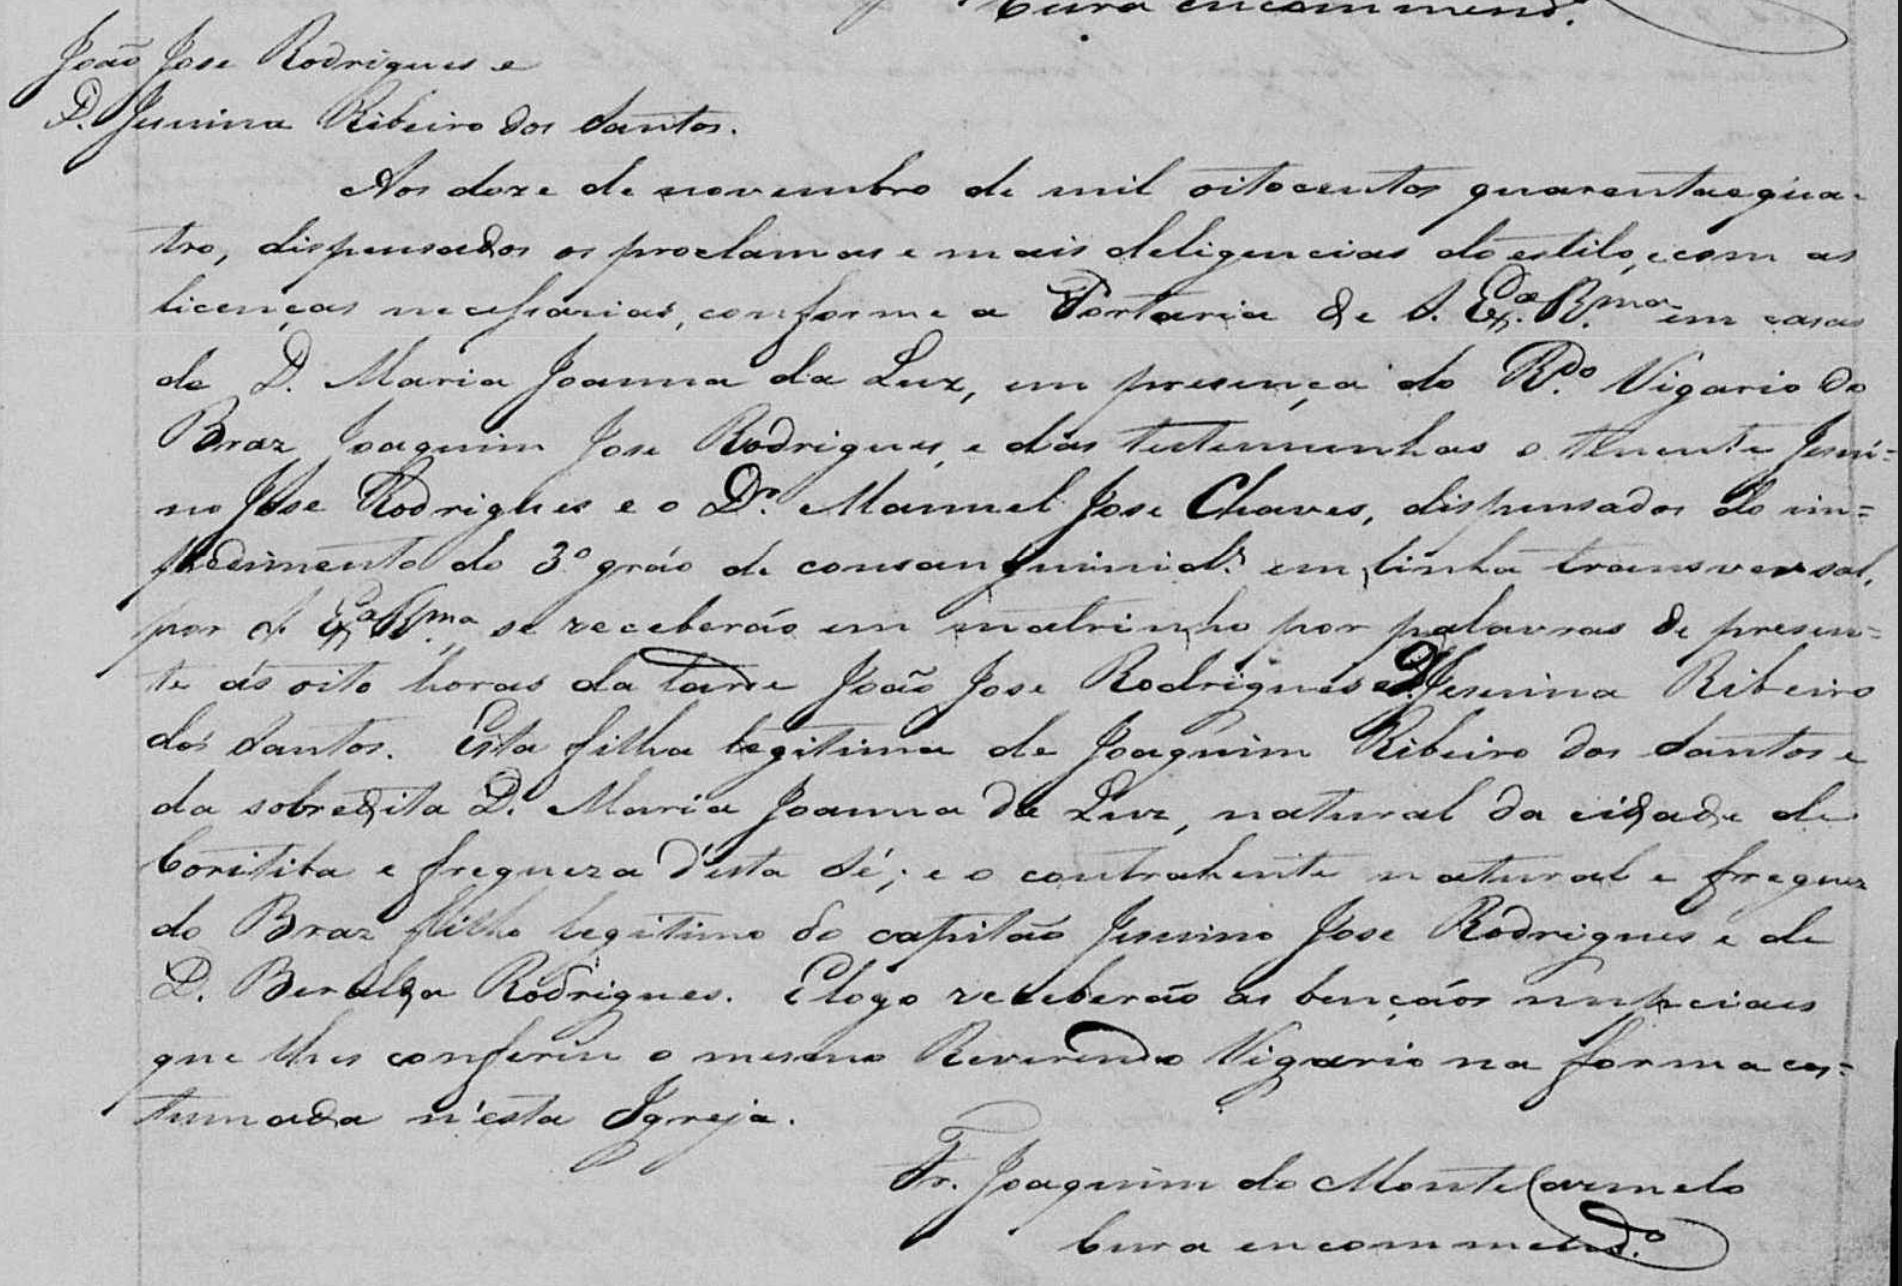 Cura encommend.º
João Jose Rodrigues e
D. Jesuina Ribeiro dos Santos.
Aos doze de novembro de mil oitocentos quarenta e qua-
tro, dispensados os proclamas e mais deligencias do estilo, e com as
licenças necessarias, conforme a Portaria de S. Ex.ª R.ma em casas
de D. Maria Joanna da Luz, em presença do R.do Vigario do
Braz Joaquim Jose Rodrigues, e das testemunhas o tenente Jesui=
no Jose Rodrigues e o Dr. Manuel Jose Chaves, dispensados do im=
pedimento do 3º gráo de consanguinid.e em linha transversal,
por S. Ex.ª R.ma, se receberão em matrinho por palavras de presen=
te ás oito horas da tarde João Jose Rodrigues e D. Jesuina Ribeiro
dos Santos. Esta filha legitima de Joaquim Ribeiro dos Santos e
da sobredita D. Maria Joanna da Luz, natural da cidade de
Coritiba e fregueza d'esta Sé; e o contrahente natural e freguez
do Braz filho legitimo do capitão Jesuino Jose Rodrigues e de
D. Beralda Rodrigues. E logo receberão as bençãos nupciaes
que lhes conferiu o mesmo Reverendo Vigario na forma cos=
tumada n'esta Igreja.
Fr. Joaquim do Monte Carmelo
Cura encommend.º